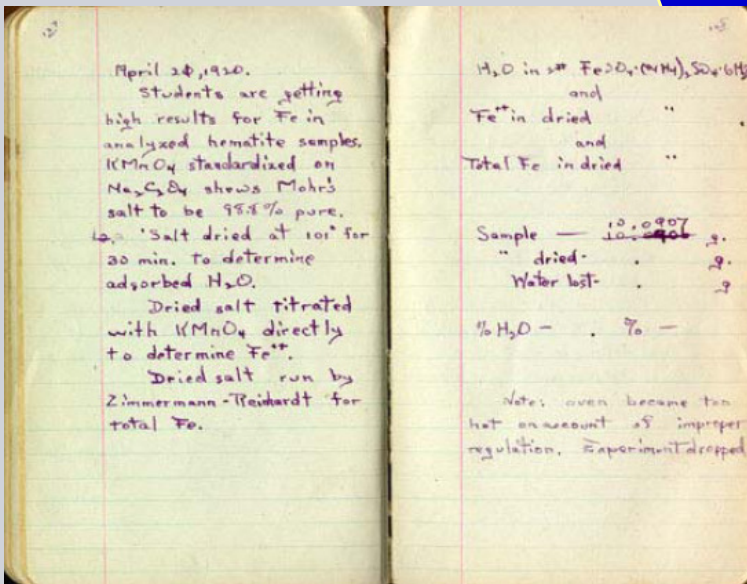 127
April 20, 1920.
Students are getting
high results for Fe in
analyzed hematite samples.
KMnO₄ standardized on
Na₂C₂O₄ shows Mohr's
salt to be 98.8% pure.
Salt dried at 101° for
30 min. to determine
adsorbed H₂O.
Dried salt titrated
with KMnO₄ directly
to determine Fe⁺⁺.
Dried salt run by
Zimmermann-Reinhardt for
total Fe.
128
H₂O in FeSO₄·(NH₄)₂SO₄·6H₂
and
Fe⁺⁺ in dried "
and
Total Fe in dried "
10.0907
Sample — g.
" dried - . g.
Water lost - . g
% H₂O - . % —
Note: oven became too
hot on account of improper
regulation. Experiment dropped